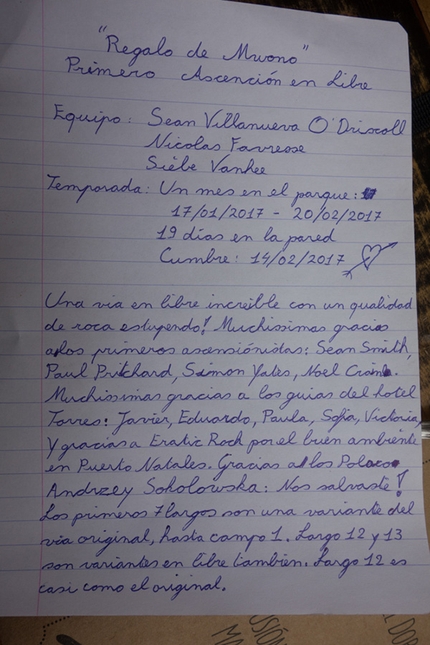 "Regalo de Mwono"
Primero Ascención en Libre
Equipo: Sean Villanueva O'Driscoll
Nicolas Favresse
Siebe Vanhee
Temporada: Un mes en el parque:
17/01/2017 - 20/02/2017
19 días en la pared
Cumbre: 14/02/2017
Una via en libre increíble con un qualidad
de roca estupendo! Muchissimas gracias
a los primeros ascensiónistas: Sean Smith,
Paul Pritchard, Simon Yates, Noel Craine.
Muchissimas gracias a los guias del hotel
Torres: Javier, Eduardo, Paula, Sofia, Victoria,
Y gracias a Eratic Rock por el buen ambiente
en Puerto Natales. Gracias a los Polacos
Andrzey Sokolowska: Nos salvaste!
Los primeros 7 largos son una variante del
via original, hasta campo 1. Largo 12 y 13
son variantes en libre tambien. Largo 12 es
casi como el original.